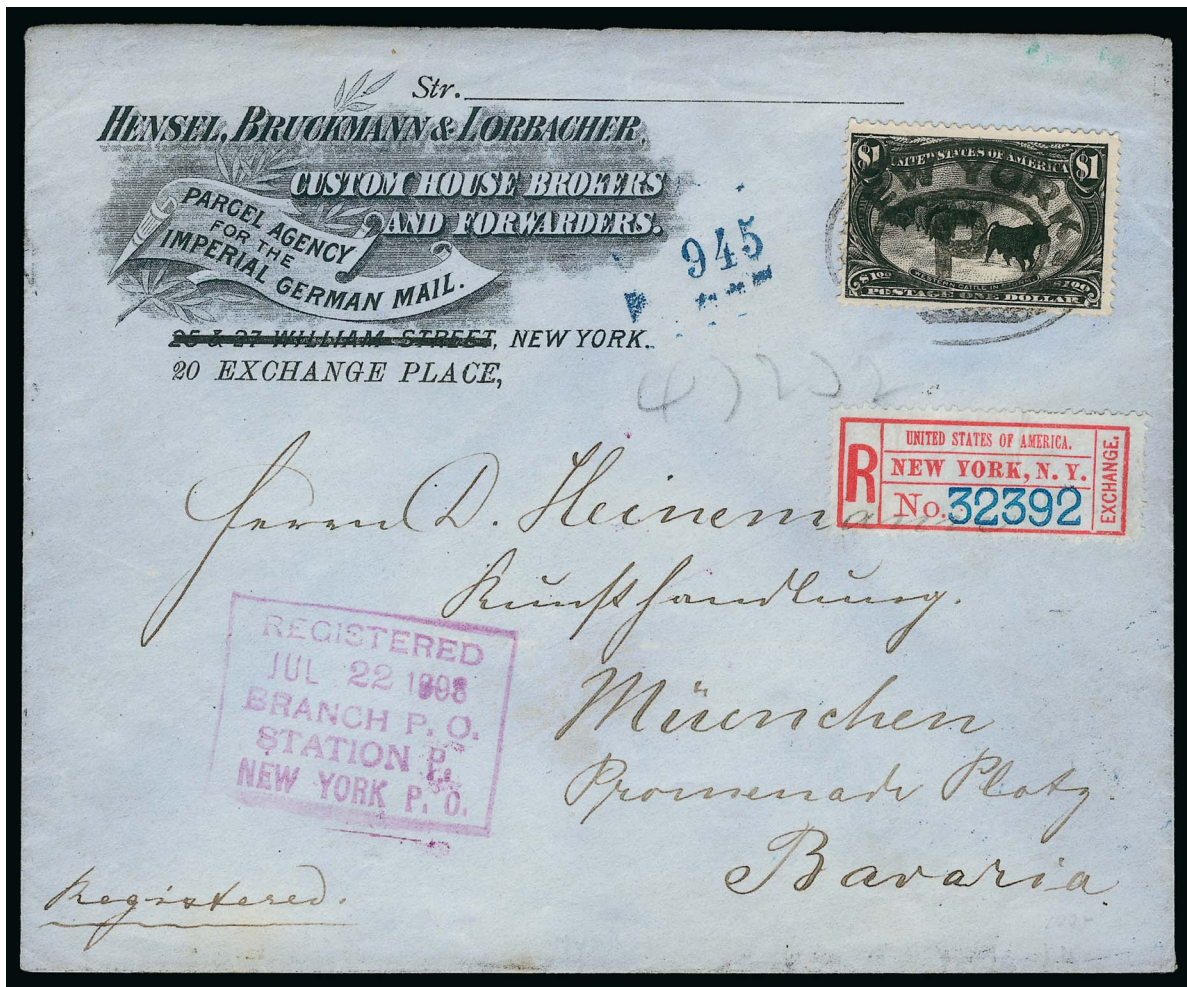 Str.
HENSEL, BRUCKMANN & LORBACHER,
CUSTOM HOUSE BROKERS
AND FORWARDERS.
PARCEL AGENCY
FOR THE
IMPERIAL GERMAN MAIL.
25 & 27 WILLIAM STREET, NEW YORK.
20 EXCHANGE PLACE,
945
$1 UNITED STATES OF AMERICA $1
NEW YORK.
P
WESTERN CATTLE IN STORM
$1.00 $1.00
POSTAGE ONE DOLLAR
R
UNITED STATES OF AMERICA.
NEW YORK, N. Y.
No. 32392
EXCHANGE.
Herrn D. Heinemann
Kunsthandlung.
München
Promenade Platz.
Bavaria
REGISTERED
JUL 22 1898
BRANCH P. O.
STATION P.
NEW YORK P. O.
Registered.